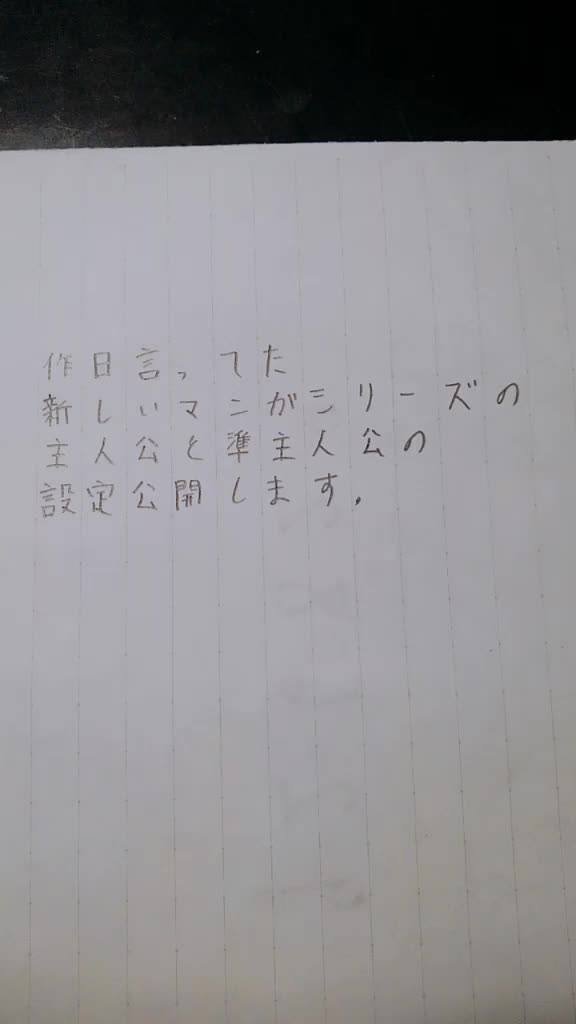 作日言ってた
新しいマンガシリーズの
主人公と準主人公の
設定公開します。